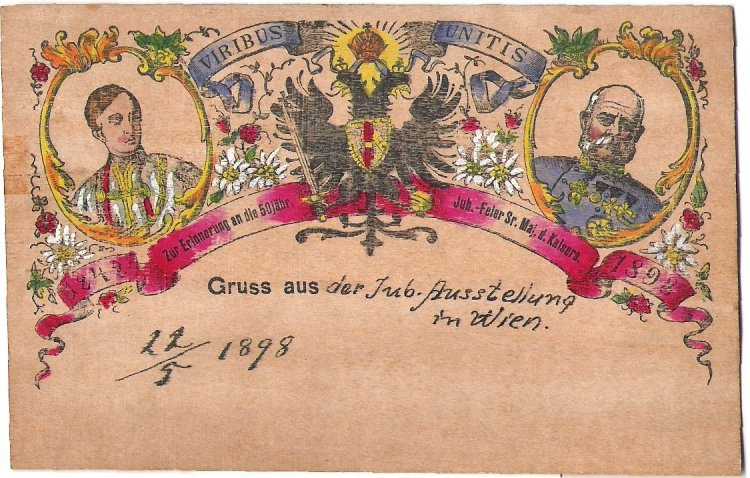 VIRIBUS UNITIS
Zur Erinnerung an die 50jähr. Jub.-Feier Sr. Maj. d. Kaisers.
1898
Gruss aus der Jub. Ausstellung
in Wien.
5 1898